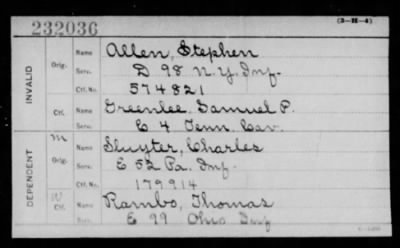 232036 (3-H-4)
INVALID Orig. Name Allen, Stephen
Serv. D 98 N.Y. Inf.
Ctf. No. 574821
Ctf. Name Greenlee, Samuel P.
Serv. E 4 Tenn. Cav.
DEPENDENT M Orig. Name Sluyter, Charles
Serv. E 52 Pa. Inf.
Ctf. No. 179914
W Ctf. Name Rambo, Thomas
Serv. E 99 Ohio Inf